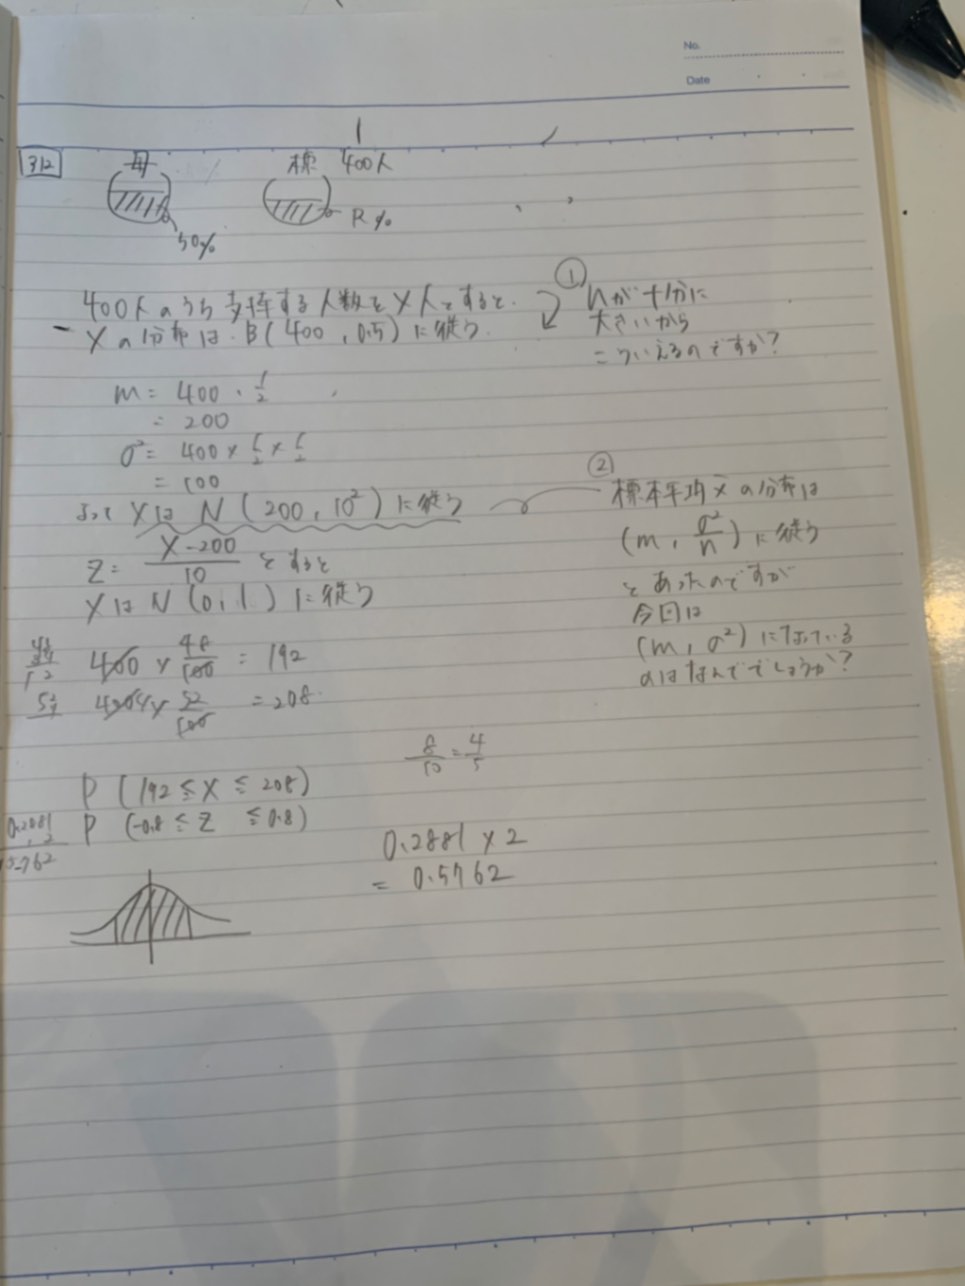 No.
Date
312
母
標 400人
R%
50%
400人のうち支持する人数をX人とすると.
Xの分布は. B(400, 0.5)に従う.
① nが十分に
大きいから
こういえるのですか?
m = 400 · 1/2
= 200
σ² = 400 × 1/2 × 1/2
= 100
よって XはN(200, 10²)に従う
Z = X-200/10 とすると
XはN(0, 1)に従う
② 標本平均x̄の分布は
(m, σ²/n)に従う
とあったのですが
今回は
(m, σ²)になっている
のはなんででしょうか?
400 × 48/100 = 192
× 52/100 = 208
8/10 = 4/5
P (192 ≦ X ≦ 208)
P (-0.8 ≦ Z ≦ 0.8)
0.2881 × 2
= 0.5762